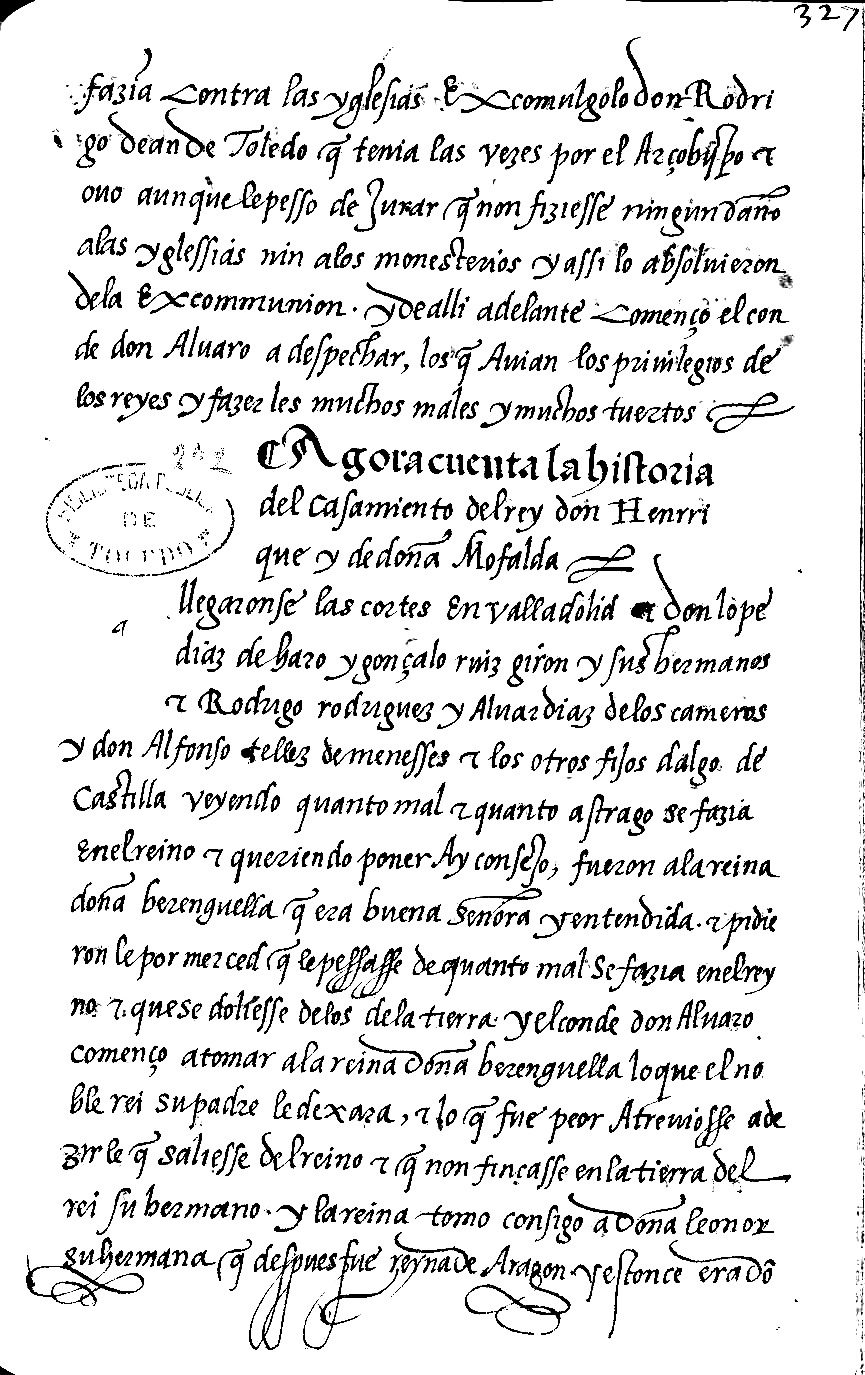 327
fazia contra las yglesias Excomulgolo don Rodri
go dean de Toledo q̃ tenia las vezes por el Arçobispo τ
ovo aunque le pesso de Jurar q̃ non fiziesse ningun daño
alas yglessias nin alos monesterios y assi lo absolvieron
dela Excommunion. y de alli adelante començo el con
de don Alvaro a despechar, los q̃ Avian los privilegios de
los reyes y fazer les muchos males y muchos tuertos
242
¶ Agora cuenta la historia
del casamiento del rey don Henrri
que y de doña Mofalda
BIBLIOTECA PUBLICA
DE
TOLEDO
a
llegaronse las cortes En valladolid τ don lope
diaz de haro y gonçalo ruiz giron y sus hermanos
τ Rodrigo rodriguez y Alvar diaz delos cameros
y don Alfonso tellez de menesses τ los otros fijos dalgo de
Castilla veyendo quanto mal τ quanto astrago se fazia
Enel reino τ queriendo poner Ay consejo, fueron ala reina
doña berenguella q̃ era buena señora y entendida. τ pidie
ron le por merced q̃ le pessasse de quanto mal se fazia enel rey
no τ que se doliesse delos dela tierra. y el conde don Alvaro
començo a tomar ala reina doña berenguella lo que el no
ble rei su padre le dexara, τ lo q̃ fue peor Atreviosse a de
zir le q̃ saliesse del reino τ q̃ non fincasse en la tierra del
rei su hermano. y la reina tomo consigo a doña leonor
su hermana q̃ despues fue reyna de Aragon. y estonce era dõ